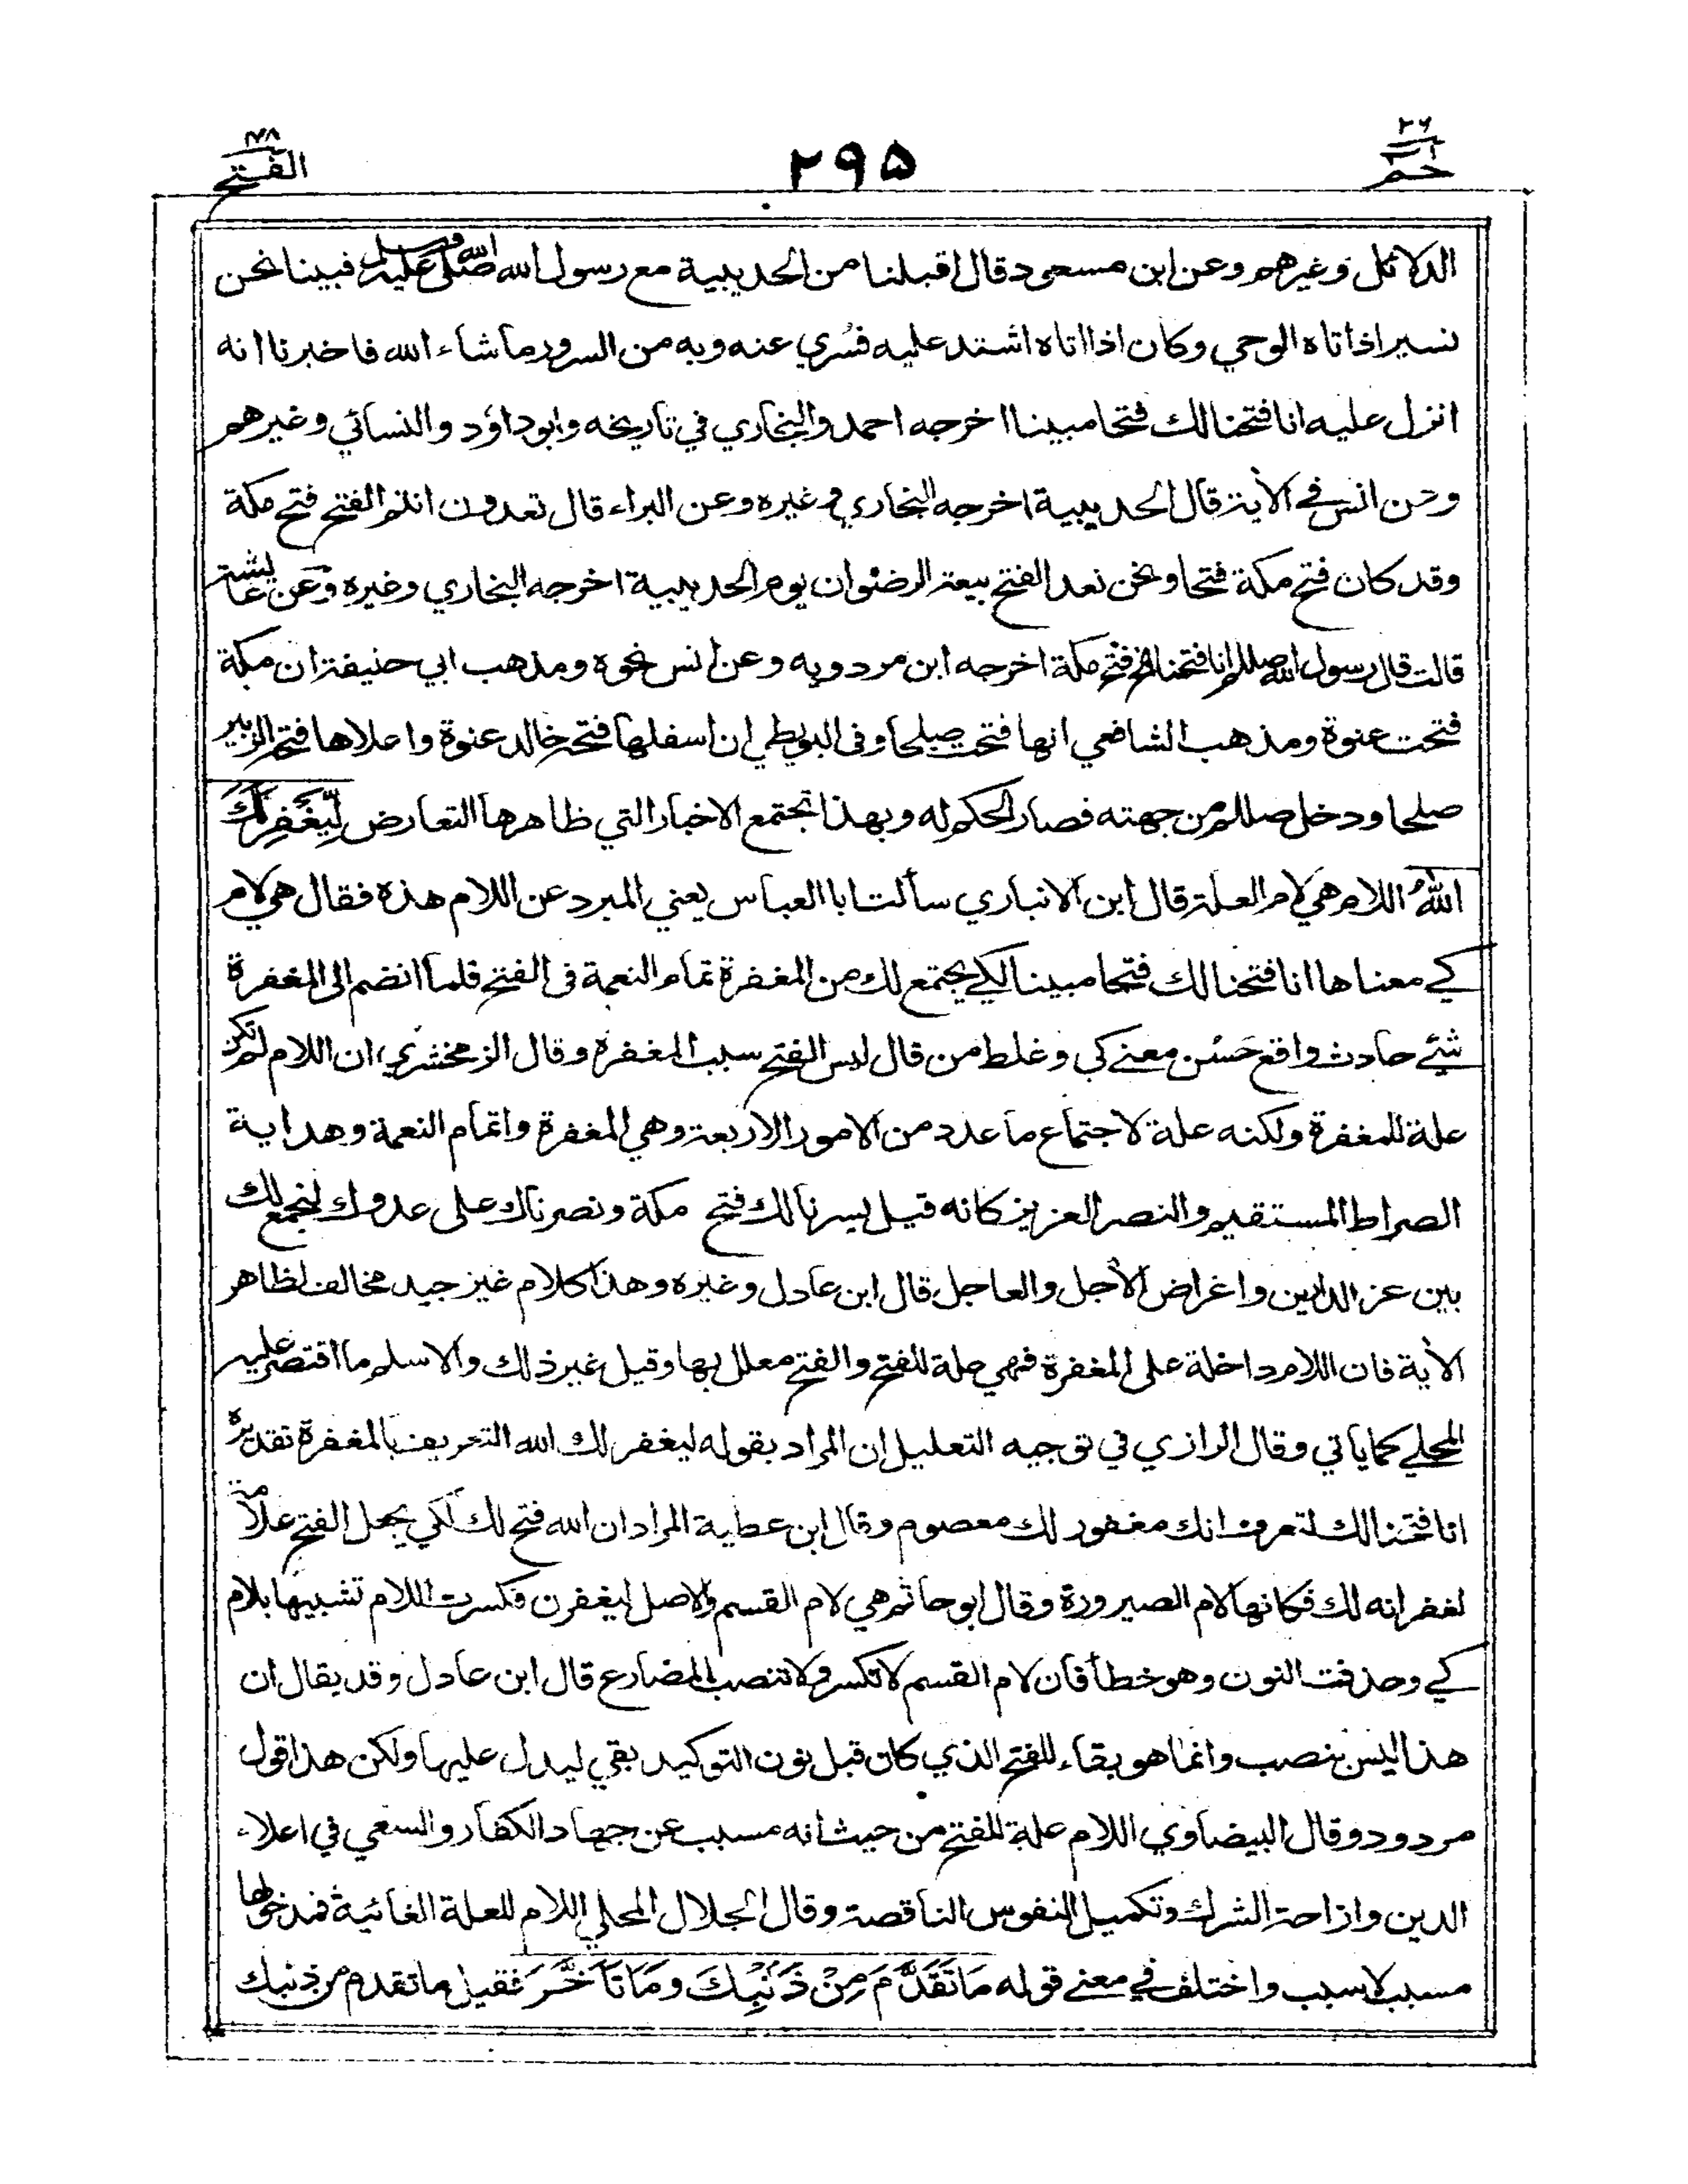 حم ٢٦
٢٩٥
الفتح ٤٨
الدلائل وغيرهم وعن ابن مسعود قال اقبلنا من الحديبية مع رسول الله صلى الله عليه وسلم فبينا نحن
نسير اذ اتاه الوحي وكان اذا اتاه اشتد عليه فسُري عنه وبه من السرور ما شاء الله فاخبرنا انه
انزل عليه انا فتحنا لك فتحا مبينا اخرجه احمد والبخاري في تاريخه وابو داؤد والنسائي وغيرهم
وعن انس في الأية قال الحديبية اخرجه البخاري وغيره وعن البراء قال تعدون انتم الفتح فتح مكة
وقد كان فتح مكة فتحا ونحن نعد الفتح بيعة الرضوان يوم الحديبية اخرجه البخاري وغيره وعن عائشة
قالت قال رسول الله صللم انا فتحنا الخ فتح مكة اخرجه ابن مردويه وعن انس نحوه ومذهب ابي حنيفة ان مكة
فتحت عنوة ومذهب الشافعي انها فتحت صلحا وفى البويطي ان اسفلها فتحه خالد عنوة واعلاها فتحه الزبير
صلحا ودخل صللم من جهته فصار الحكم له وبهذا تجتمع الاخبار التي ظاهرها التعارض لِّيَغْفِرَ لَكَ
اللهُ اللام هي لام العلة قال ابن الانباري سألت ابا العباس يعني المبرد عن اللام هذه فقال هي لام
كي معناها انا فتحنا لك فتحا مبينا لكي يجتمع لك من المغفرة تمام النعمة فى الفتح فلما انضم الى المغفرة
شئ حادث واقع حَسُن معنى كي وغلط من قال ليس الفتح سبب المغفرة وقال الزمخشري ان اللام لم تكن
علة للمغفرة ولكنه علة لاجتماع ما عدد من الامور الاربعة وهي المغفرة واتمام النعمة وهداية
الصراط المستقيم والنصر العزيز كانه قيل يسرنا لك فتح مكة ونصرناك على عدوك لنجمع لك
بين عز الدارين واغراض الأجل والعاجل قال ابن عادل وغيره وهذا كلام غير جيد مخالف لظاهر
الأية فان اللام داخلة على المغفرة فهي علة للفتح والفتح معلل بها وقيل غير ذلك والاسلم ما اقتصر عليه
المحلي كما ياتي وقال الرازي في توجيه التعليل ان المراد بقوله ليغفر لك الله التعريف بالمغفرة تقديره
انا فتحنا لك لتعرف انك مغفور لك معصوم وقال ابن عطية المراد ان الله فتح لك لكي يجعل الفتح علامة
لغفرانه لك فكانها لام الصيرورة وقال ابو حاتم هي لام القسم والاصل ليغفرن فكسرت اللام تشبيها بلام
كي وحذفت النون وهو خطأ فان لام القسم لا تكسر ولا تنصب المضارع قال ابن عادل وقد يقال ان
هذا ليس بنصب وانما هو بقاء للفتح الذي كان قبل نون التوكيد بقي ليدل عليها ولكن هذا قول
مردود وقال البيضاوي اللام علة للفتح من حيث انه مسبب عن جهاد الكفار والسعي في اعلاء
الدين وازاحة الشرك وتكميل النفوس الناقصة وقال الجلال المحلي اللام للعلة الغائية فمدخولها
مسبب لا سبب واختلف في معنى قوله مَا تَقَدَّمَ مِنْ ذَنْبِكَ وَمَا تَأَخَّرَ فقيل ما تقدم من ذنبك